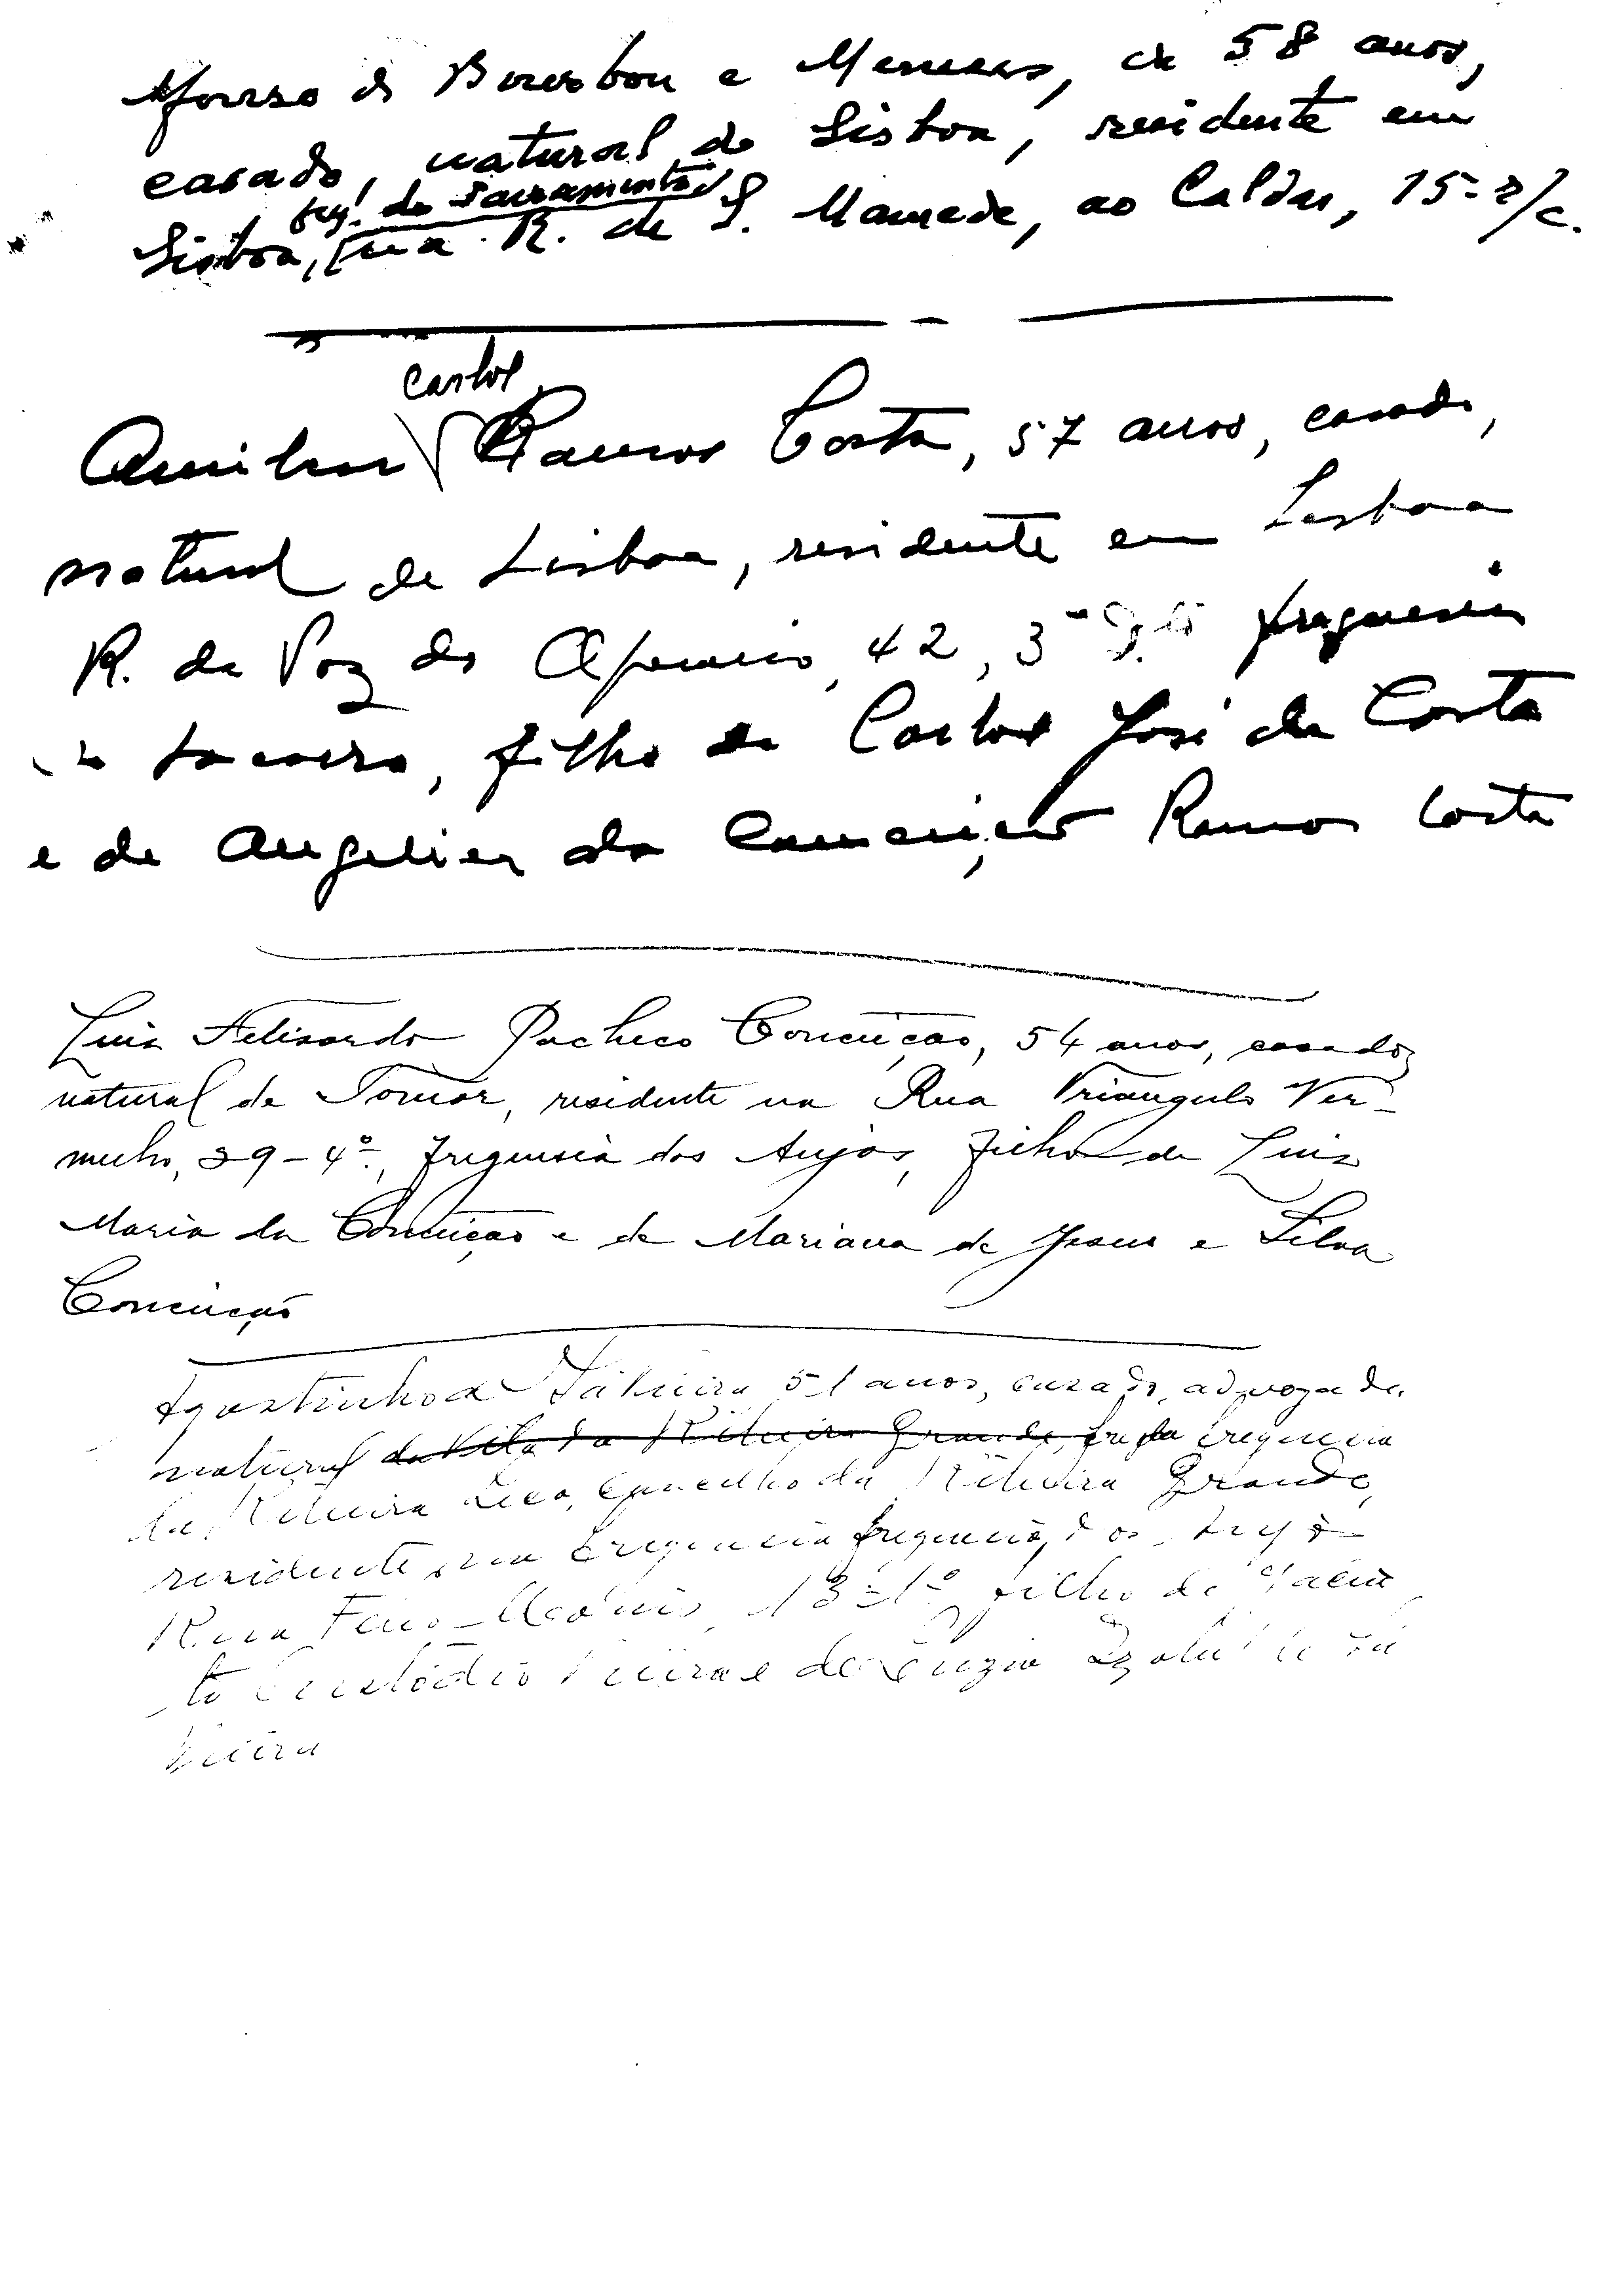 Afonso de Bourbon e Meneses, de 58 anos,
casado, natural de Lisboa, residente em
freg. do Sacramento
Lisboa, na R. de S. Mamede, ao Caldas, 15-r/c.
Carlos
Amilcar Ramos Costa, 57 anos, casado,
natural de Lisboa, residente em Lisboa
R. da Voz do Operario, 42, 3º freguesia
filho de Carlos José da Costa
e de Angelina da Conceição Ramos Costa
Luis Felisardo Pacheco Conceição, 54 anos, casado,
natural de Tomar, residente na Rua Triangulo Ver-
melho, 39-4º, freguesia dos Anjos, filho de Luis
Maria da Conceição e de Mariana de Jesus e Silva
Conceição
Agostinho de Sá Vieira 51 anos, casado, advogado,
natural da Vila da Ribeira Grande, freguesia
da Ribeira Seca, Concelho da Ribeira Grande,
residente na freguesia freguesia dos Anjos
Rua 13-1º filho de Jacin
to Custodio Vieira e de Luzia de Sá
Vieira